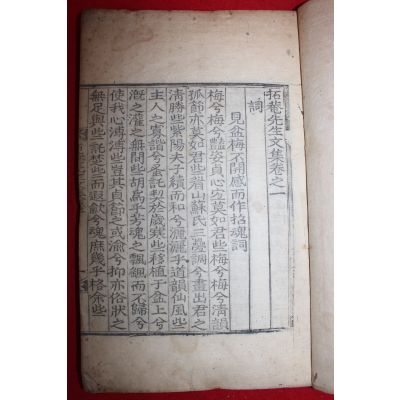 拓菴先生文集卷之一
詞
見盆梅不開感而作招魂詞
梅兮梅兮豔姿貞心宜莫如君些梅兮梅兮淸韻
孤節亦莫如君些眉山蘇氏三疊調兮畫出君之
淸勝些紫陽夫子續而和兮灑灑乎道韻仙風些
主人之寡諧兮蚤託契於歲寒些移植于盆上兮
漑之灌之無間些胡爲乎芳魂之飄飄而不歸兮
使我心溥溥些豈其貞節之或渝兮抑亦俗狀之
無足與些託楚些而遐歃兮魂庶幾乎格余些